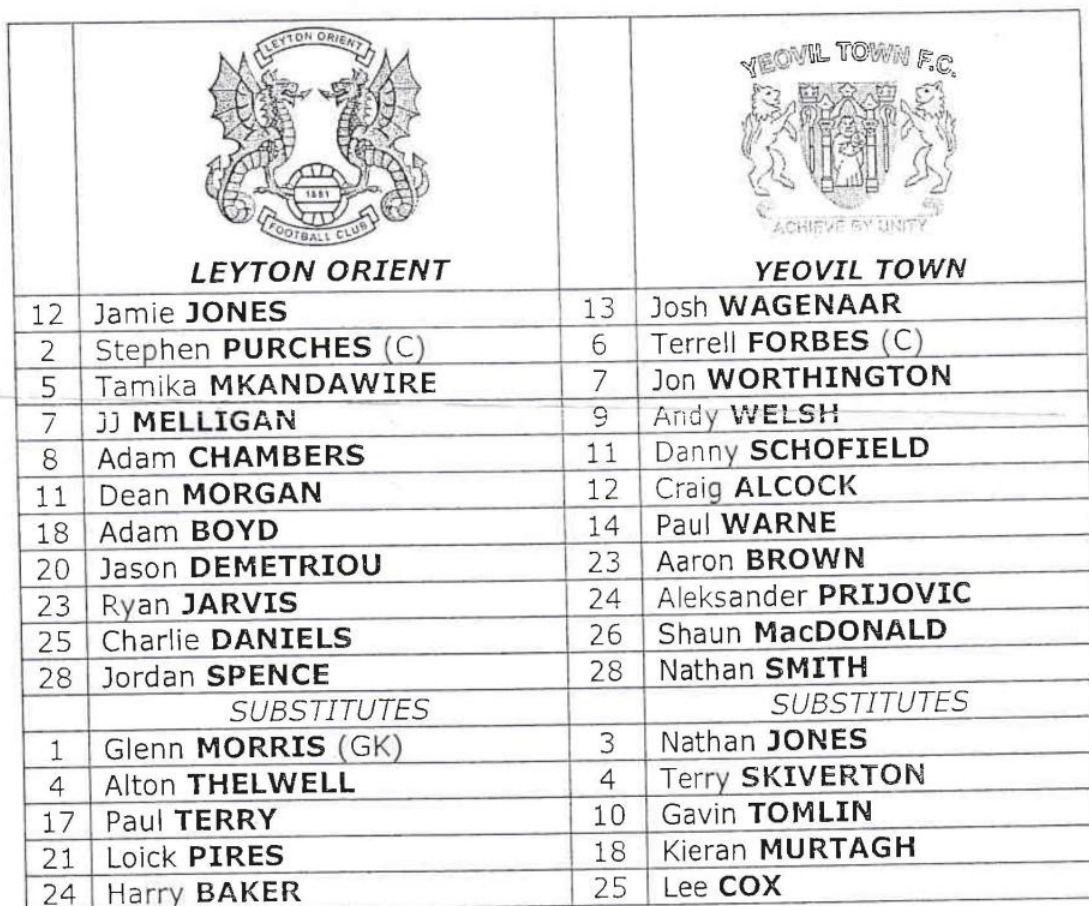 LEYTON ORIENT
1881
FOOTBALL CLUB
YEOVIL TOWN F.C.
ACHIEVE BY UNITY
LEYTON ORIENT YEOVIL TOWN
12 Jamie JONES 13 Josh WAGENAAR
2 Stephen PURCHES (C) 6 Terrell FORBES (C)
5 Tamika MKANDAWIRE 7 Jon WORTHINGTON
7 JJ MELLIGAN 9 Andy WELSH
8 Adam CHAMBERS 11 Danny SCHOFIELD
11 Dean MORGAN 12 Craig ALCOCK
18 Adam BOYD 14 Paul WARNE
20 Jason DEMETRIOU 23 Aaron BROWN
23 Ryan JARVIS 24 Aleksander PRIJOVIC
25 Charlie DANIELS 26 Shaun MacDONALD
28 Jordan SPENCE 28 Nathan SMITH
SUBSTITUTES SUBSTITUTES
1 Glenn MORRIS (GK) 3 Nathan JONES
4 Alton THELWELL 4 Terry SKIVERTON
17 Paul TERRY 10 Gavin TOMLIN
21 Loick PIRES 18 Kieran MURTAGH
24 Harry BAKER 25 Lee COX